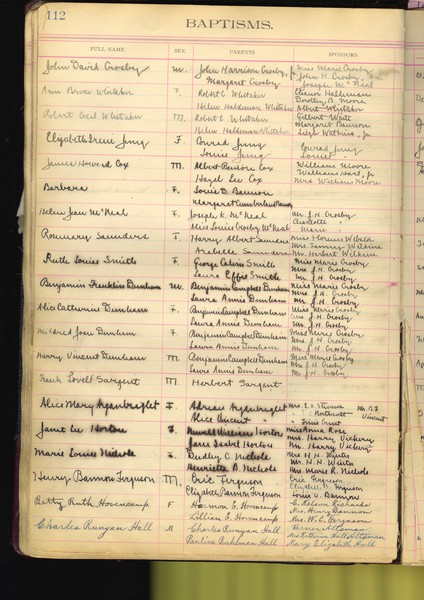 112
BAPTISMS.
FULL NAME SEX PARENTS SPONSORS
John David Crosby M. John Harrison Crosby, Jr. Miss Marie Crosby
Margaret Crosby John H. Crosby,
Joseph Mc Neal
Anne Whitaker F. Robert C Whitaker Eleanor Halleman
Helen Halleman Whitaker Dorothy B. Moore
Albert Whitaker
Robert Cecil Whitaker M. Robert C. Whitaker Gilbert
Helen Halleman Whitaker Margaret Bannon
Watkins, Jr
Elizabeth Irene Jung F. Conrad Jung Conrad Jung
Louise Jung Louise "
James Howard Cox M. Albert Cox William Moore
Hazel Lee Cox William Hart, Jr
Mrs William Moore
Barbara F. Louis D. Bannon
Margaret Cumberland Bannon
Helen Jean McNeal F. Joseph K. McNeal Mr. J.H. Crosby
Alice Louise Crosby McNeal Charlotte "
Marie "
Rosemary Saunders F. Harry Albert Saunders Mrs Florence
Arabella Saunders Mrs. Fannie Wilkins
Mr. Herbert Wilkins
Ruth Louise Smith F. George Calvin Smith Miss Marie Crosby
Laura Effie Smith Mrs J.H. Crosby
Mr. J.H. Crosby
Benjamin Franklin Dunham M. Benjamin Campbell Dunham Miss Marie Crosby
Laura Annie Dunham Mrs J.H. Crosby
Mr. J.H. Crosby
Alice Catherine Dunham F. Benjamin Campbell Dunham Miss Marie Crosby
Laura Annie Dunham Mrs J.H. Crosby
Mr. J.H. Crosby
Mildred Joan Dunham F. Benjamin Campbell Dunham Miss Marie Crosby
Laura Annie Dunham Mrs J.H. Crosby
Mr. J.H. Crosby
Harry Vincent Dunham M. Benjamin Campbell Dunham Miss Marie Crosby
Laura Annie Dunham Mrs J.H. Crosby
Mr. J.H. Crosby
Frank Lovell Sargent M. Herbert Sargent
Alice Mary Argenbright F. Adrian Argenbright Mrs. E.V. Stevens
Alice Vincent " Northcott Vincent
Janet Lee Horton F. Newell William Horton Miss Anna Ross
Jane Isabel Horton Mrs. Harry Vickery
Mr. Harry Vickery
Marie Louise Nichols F. Dudley C. Nichols Mrs H.N. Winter
Henrietta B. Nichols Mr. H.N. Winter
Mrs Marie R. Nichols
Henry Bannon Ferguson M. Eric Ferguson Eric Ferguson
Elizabeth Bannon Ferguson Elizabeth B. Ferguson
Louis D. Bannon
Betty Ruth Hovencamp F Harmon E. Hovencamp S. Nelson Richards
Lillian E. Hovencamp Mrs. Henry Bannon
Mrs. W.E. Ferguson
Charles Runyan Hall M Charles Runyan Hall Verner Altsman
Pauline Ruhlman Hall Mrs Katherine Hall Altsman
Mary Elizabeth Hall